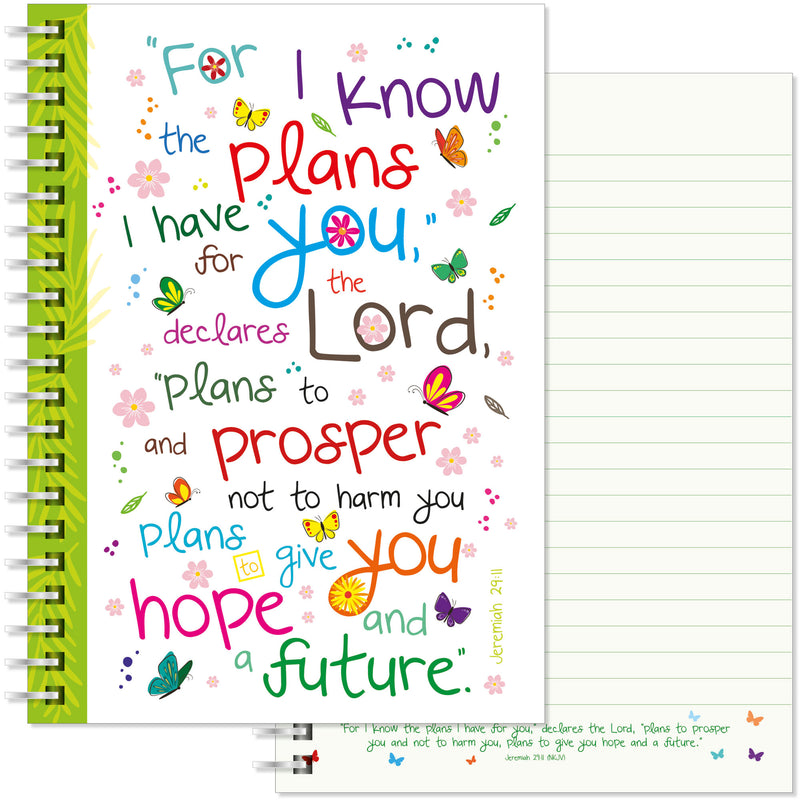 "For I know
the plans
I have for you,"
declares the Lord,
"plans to
and prosper
not to harm you
plans to give you
hope and
a future".
Jeremiah 29:11
"For I know the plans I have for you," declares the Lord, "plans to prosper
you and not to harm you, plans to give you hope and a future."
Jeremiah 29:11 (NKJV)